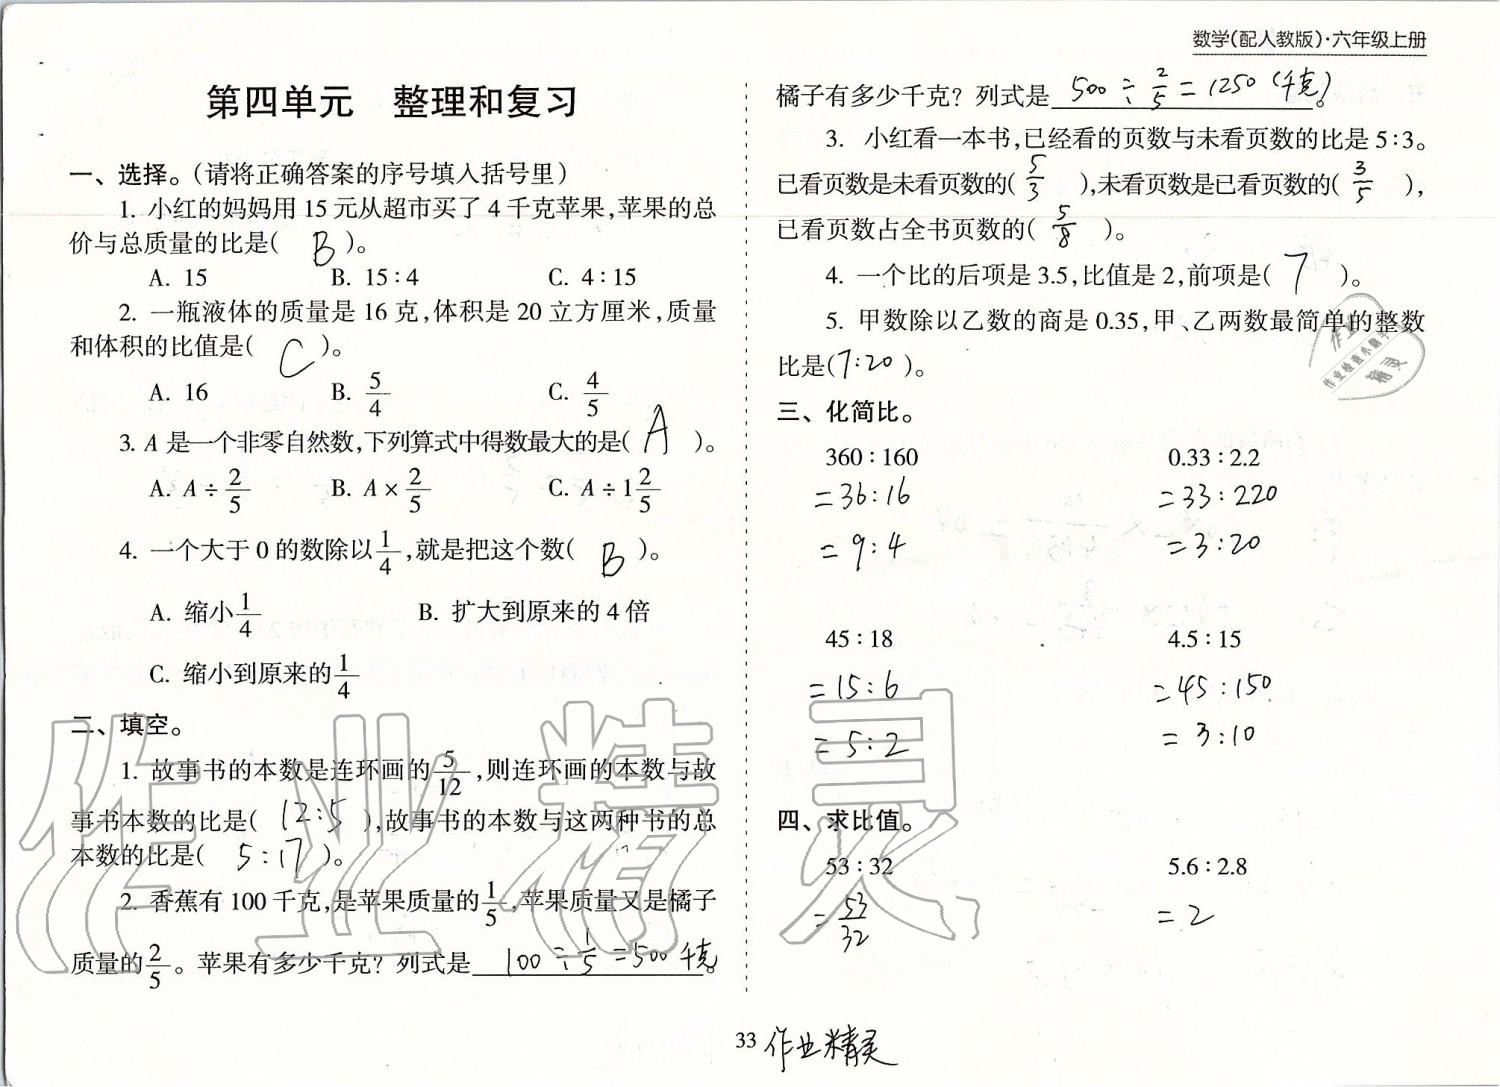 数学(配人教版)·六年级上册
第四单元 整理和复习
一、选择。(请将正确答案的序号填入括号里)
1. 小红的妈妈用 15 元从超市买了 4 千克苹果,苹果的总
价与总质量的比是( B )。
A. 15 B. 15∶4 C. 4∶15
2. 一瓶液体的质量是 16 克,体积是 20 立方厘米,质量
和体积的比值是( C )。
A. 16 B. 5/4 C. 4/5
3. A 是一个非零自然数,下列算式中得数最大的是( A )。
A. A÷2/5 B. A×2/5 C. A÷1 2/5
4. 一个大于 0 的数除以1/4,就是把这个数( B )。
A. 缩小1/4 B. 扩大到原来的 4 倍
C. 缩小到原来的1/4
二、填空。
1. 故事书的本数是连环画的5/12,则连环画的本数与故
事书本数的比是( 12:5 ),故事书的本数与这两种书的总
本数的比是( 5:17 )。
2. 香蕉有 100 千克,是苹果质量的1/5,苹果质量又是橘子
质量的2/5。苹果有多少千克? 列式是 100÷1/5=500千克。
橘子有多少千克? 列式是 500÷2/5=1250(千克)。
3. 小红看一本书,已经看的页数与未看页数的比是 5∶3。
已看页数是未看页数的( 5/3 ),未看页数是已看页数的( 3/5 ),
已看页数占全书页数的( 5/8 )。
4. 一个比的后项是 3.5,比值是 2,前项是( 7 )。
5. 甲数除以乙数的商是 0.35,甲、乙两数最简单的整数
比是( 7:20 )。
三、化简比。
360∶160 0.33∶2.2
=36:16 =33:220
=9:4 =3:20
45∶18 4.5∶15
=15:6 =45:150
=5:2 =3:10
四、求比值。
53∶32 5.6∶2.8
=53/32 =2
33 作业精灵
作业
作业检查小助手
精灵
作业精灵